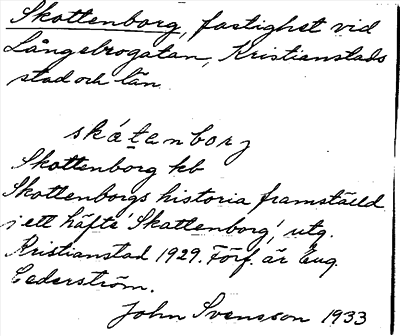 Skottenborg, fastighet vid
Långebrogatan, Kristianstads
stad och län.
skåtenborj
Skottenborg kb
Skottenborgs historia framställd
i ett häfte 'Skottenborg', utg.
Kristianstad 1929. Förf. är Eug.
Cederström.
John Svensson 1933